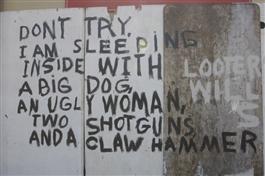 DONT TRY.
I AM SLEEPING
INSIDE WITH
A BIG DOG,
AN UGLY WOMAN,
TWO SHOTGUNS
AND A CLAW HAMMER
LOOTER
WILL